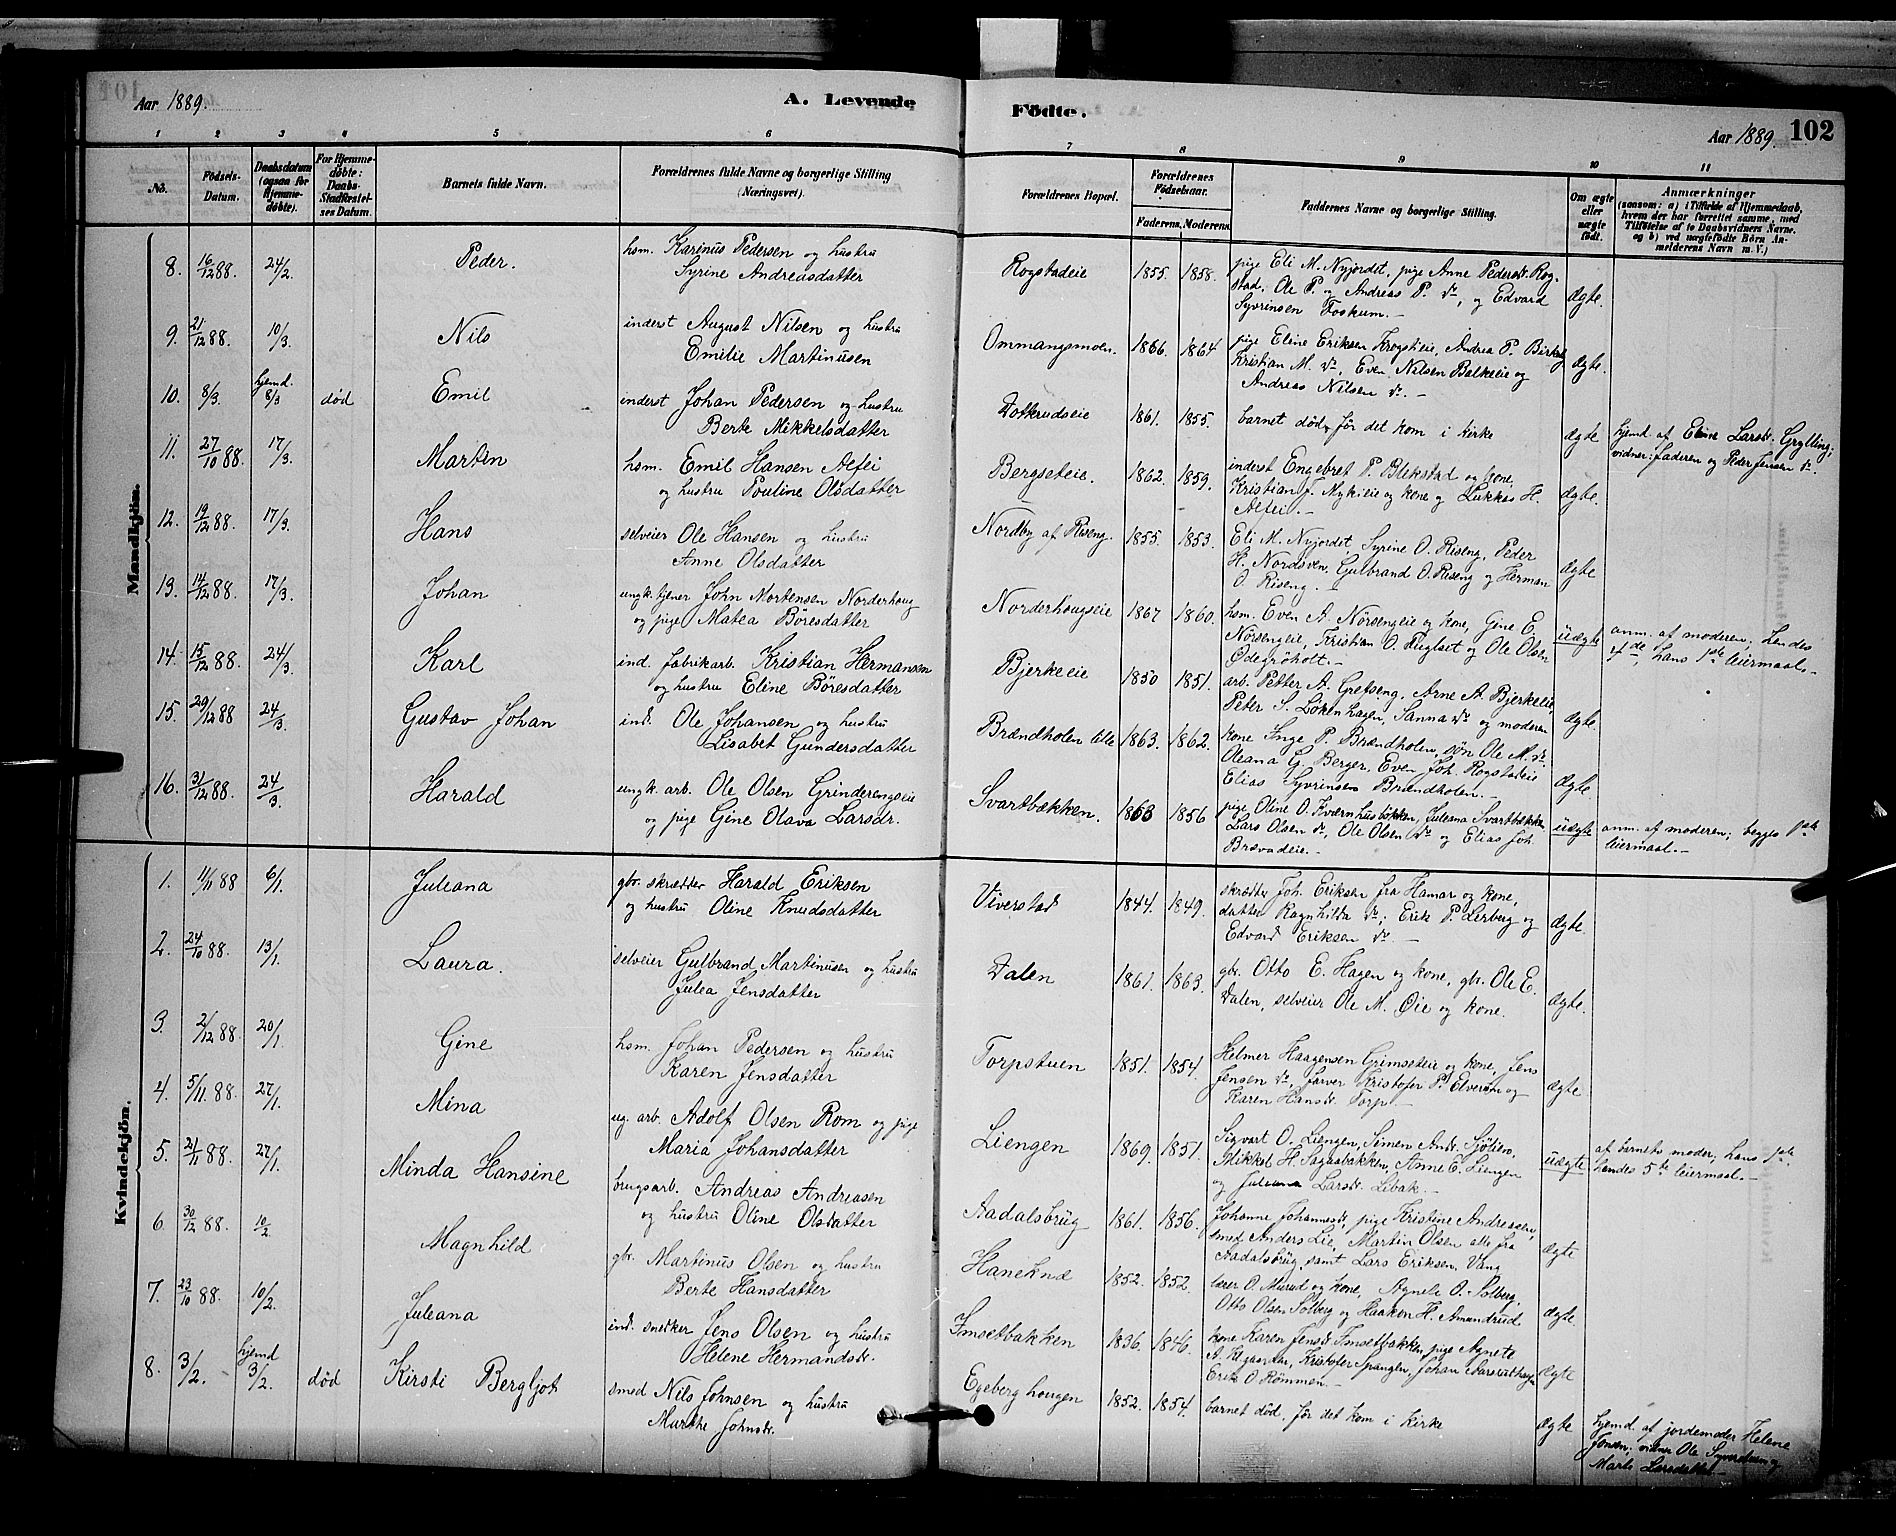 Aar 1889. A. Levende Födte. Aar 1889. 102
1 2 3 4 5 6 7 8 9 10 11
No. Födsels-Datum. Daabsdatum (ogsaa for Hjemme-döbte). For Hjemme-döbte: Daabs-Stadfæstel-ses Datum. Barnets fulde Navn. Forældrenes fulde Navne og borgerlige Stilling (Næringsvei). Forældrenes Bopæl. Forældrenes Födselsaar. Faderens. Moderens. Faddernes Navne og borgerlige Stilling. Om ægte eller uægte født. Anmærkninger (saasom: a) i Tilfælde af Hjemmedaab, hvem der har forrettet samme, med Tilföielse af to Daabsvidners Navne, og b) ved uægtefødte Börn Anmelderens Navn m. V.)
Mandkjön.
8. 16/12 88. 24/2. Peder. hsm. Karinus Pedersen og hustru
Syrine Andreasdatter
Rogstadeie 1855. 1858. pige Eli M. Nyjordet, pige Anne Pedersdr. Rog-
stad, Ole P. og Andreas P. do, og Edvard
Syvrinsen Foskum. — Ægte.
9. 21/12 88. 10/3. Nils inderst August Nilsen og hustru
Emilie Martinusen
Ommangsmoen. 1866. 1864. pige Eline Eriksen Krogsteie, Andrea P. Birke
Kristian M. do, Even Nilsen Balkeeie og
Andreas Nilsen do. — ægte.
10. 8/3. hjemd. 8/3 død Emil inderst Johan Pedersen og hustru
Berte Mikkelsdatter
Dotkrudseie 1861. 1855. barnet død, før det kom i kirke ægte hjemd. af Eline Larsdr. Grylling;
vidner: faderen og Peder Jensen do.
11. 27/10 88. 17/3. Martin hsm. Emil Hansen Alfei
og hustru Pouline Olsdatter
Bergseteie. 1862. 1859. inderst Engebret P. Blekstad og kone,
Kristian J. Mykieie og kone og Lukkas H.
Alfei. — ægte.
12. 19/12 88. 17/3. Hans selveier Ole Hansen og hustru
Anne Olsdatter
Nordby af Riseng. 1855. 1853. Eli M. Nyjordet, Syrine O. Riseng, Peder
H. Nordsven, Gulbrand O. Riseng og Herman
O. Riseng. — ægte.
13. 14/12 88. 17/3. Johan ungk. tjener John Mortensen Norderhoug
og pige Matea Böresdatter
Norderhougseie 1867 1860. hsm. Even A. Norsengeie og kone, Gine E.
Norsengeie, Kristian O. Fuglset og Ole Olsen
Ødegröholt. — uægte anm. af moderen; hendes
4de, hans 1ste leiermaal. —
14. 15/12 88. 24/3. Karl ind. fabrikarb. Kristian Hermansen
og hustru Eline Böresdatter
Bjerkeeie 1850 1851. arb. Petter A. Grefseng, Arne A. Bjerkeeie,
Peter S. Løkenhagen, Sanna do og moderen ægte.
15. 29/12 88 24/3. Gustav Johan ind. Ole Johansen og hustru
Lisabet Gundersdatter
Brændholen lille 1863. 1862. kone Inge P. Brændholen, søn Ole M. do.
Oleana G. Berger, Even Joh. Rogstadeie
Elias Syvrinsen Brændholen. — Ægte.
16. 31/12 88. 24/3. Harald ungk. arb. Ole Olsen Grinderengseie
og pige Gine Olava Larsdr.
Svartbækken. 1863 1856 pige Oline O. Kværnhusbökken, Juleana Svartbækken,
Lars Olsen do, Ole Olsen do og Elias Joh.
Brævadeie. — uægte anm. af moderen; begges 1ste
leiermaal. —
Kvindekjön.
1. 11/11 88 6/1. Juleana gbr. skrædder Harald Eriksen
og hustru Oline Knudsdatter
Viverstad 1844. 1849. skrædder Joh. Eriksen fra Hamar og kone,
datter Ragnhilda do, Erik P. Lerberg og
Edvard Eriksen do. — ægte.
2. 24/10 88. 13/1. Laura. selveier Gulbrand Martinusen og hustru
Julea Jensdatter
Dalen 1861. 1863. gbr. Otto E. Hagen og kone, gbr. Ole E.
Dalen, selveier Ole M. Øie og kone. Ægte.
3. 2/12 88. 20/1. Gine hsm. Johan Pedersen og hustru
Karen Jensdatter
Torpstuen 1851. 1854. Helmer Haagensen Grimseteie og kone, Jens
Jensen do, farver Kristofer P. Elverum og
Karen Hansdr. Torp. — ægte.
4. 5/11. 88. 27/1. Mina ug. arb. Adolf Olsen Rom og pige
Maria Johansdatter
Liengen 1869. 1851. Sigvart O. Liengen, Simen Andr. Sjölien,
Mikkel H. Sagaabakken, Anne E. Liengen
og Juleana Larsdr. Libak. — uægte af barnets moder; hans 1ste
hendes 5te leiermaal. —
5. 21/11 88. 27/1. Minda Hansine brugsarb. Andreas Andreasen
og hustru Oline Olsdatter
Aadalsbrug 1861. 1856. Johanne Johannesdr., pige Kristine Andreasen,
smed Anders Lie, Martin Olsen alle fra
Aadalsbrug samt Lars Eriksen, Vang ægte
6. 30/12 88. 10/2. Magnhild gbr. Martinus Olsen og hustru
Berte Hansdatter
Haneknæ 1852. 1852. lærer O. Murud og kone, Agnete O. Solberg,
Otto Olsen Solberg og Haaken H. Amundrud ægte.
7. 23/10 88. 10/2. Juleana ind. snedker Jens Olsen og hustru
Helene Hermandsdr.
Imsetbakken 1836. 1846. kone Karen Jensdr. Imsetbakken, pige Agnete
A. Kristofer Spangen, Johan
Erik O. Römmen. — Ægte
8. 3/2. hjemd 3/2. död Kirsti Bergljot smed Nils Johnsen og hustru
Marthe Johnsdr.
Egeberghougen 1852. 1854. barnet död, för det kom i kirke Ægte hjemd. af jordemoder Helene
Jonsen; vidner Ole Syverstuen og
Marte Larsdatter —